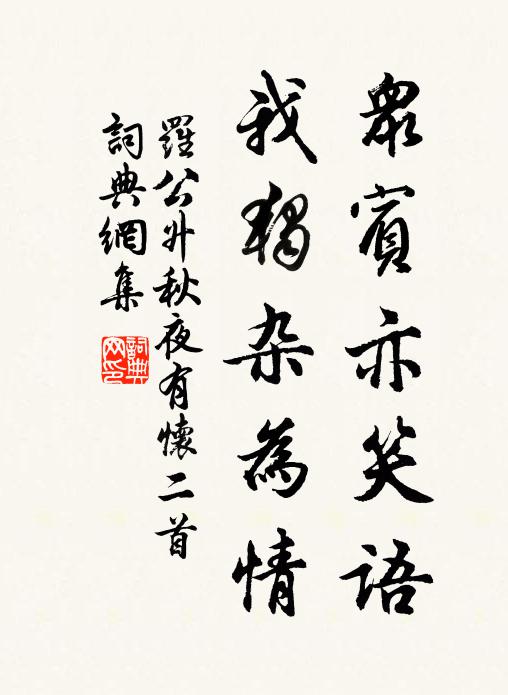 眾賓亦笑語
我獨杂為情
羅公升秋夜有懷二首
詞典網集
詞典
网印